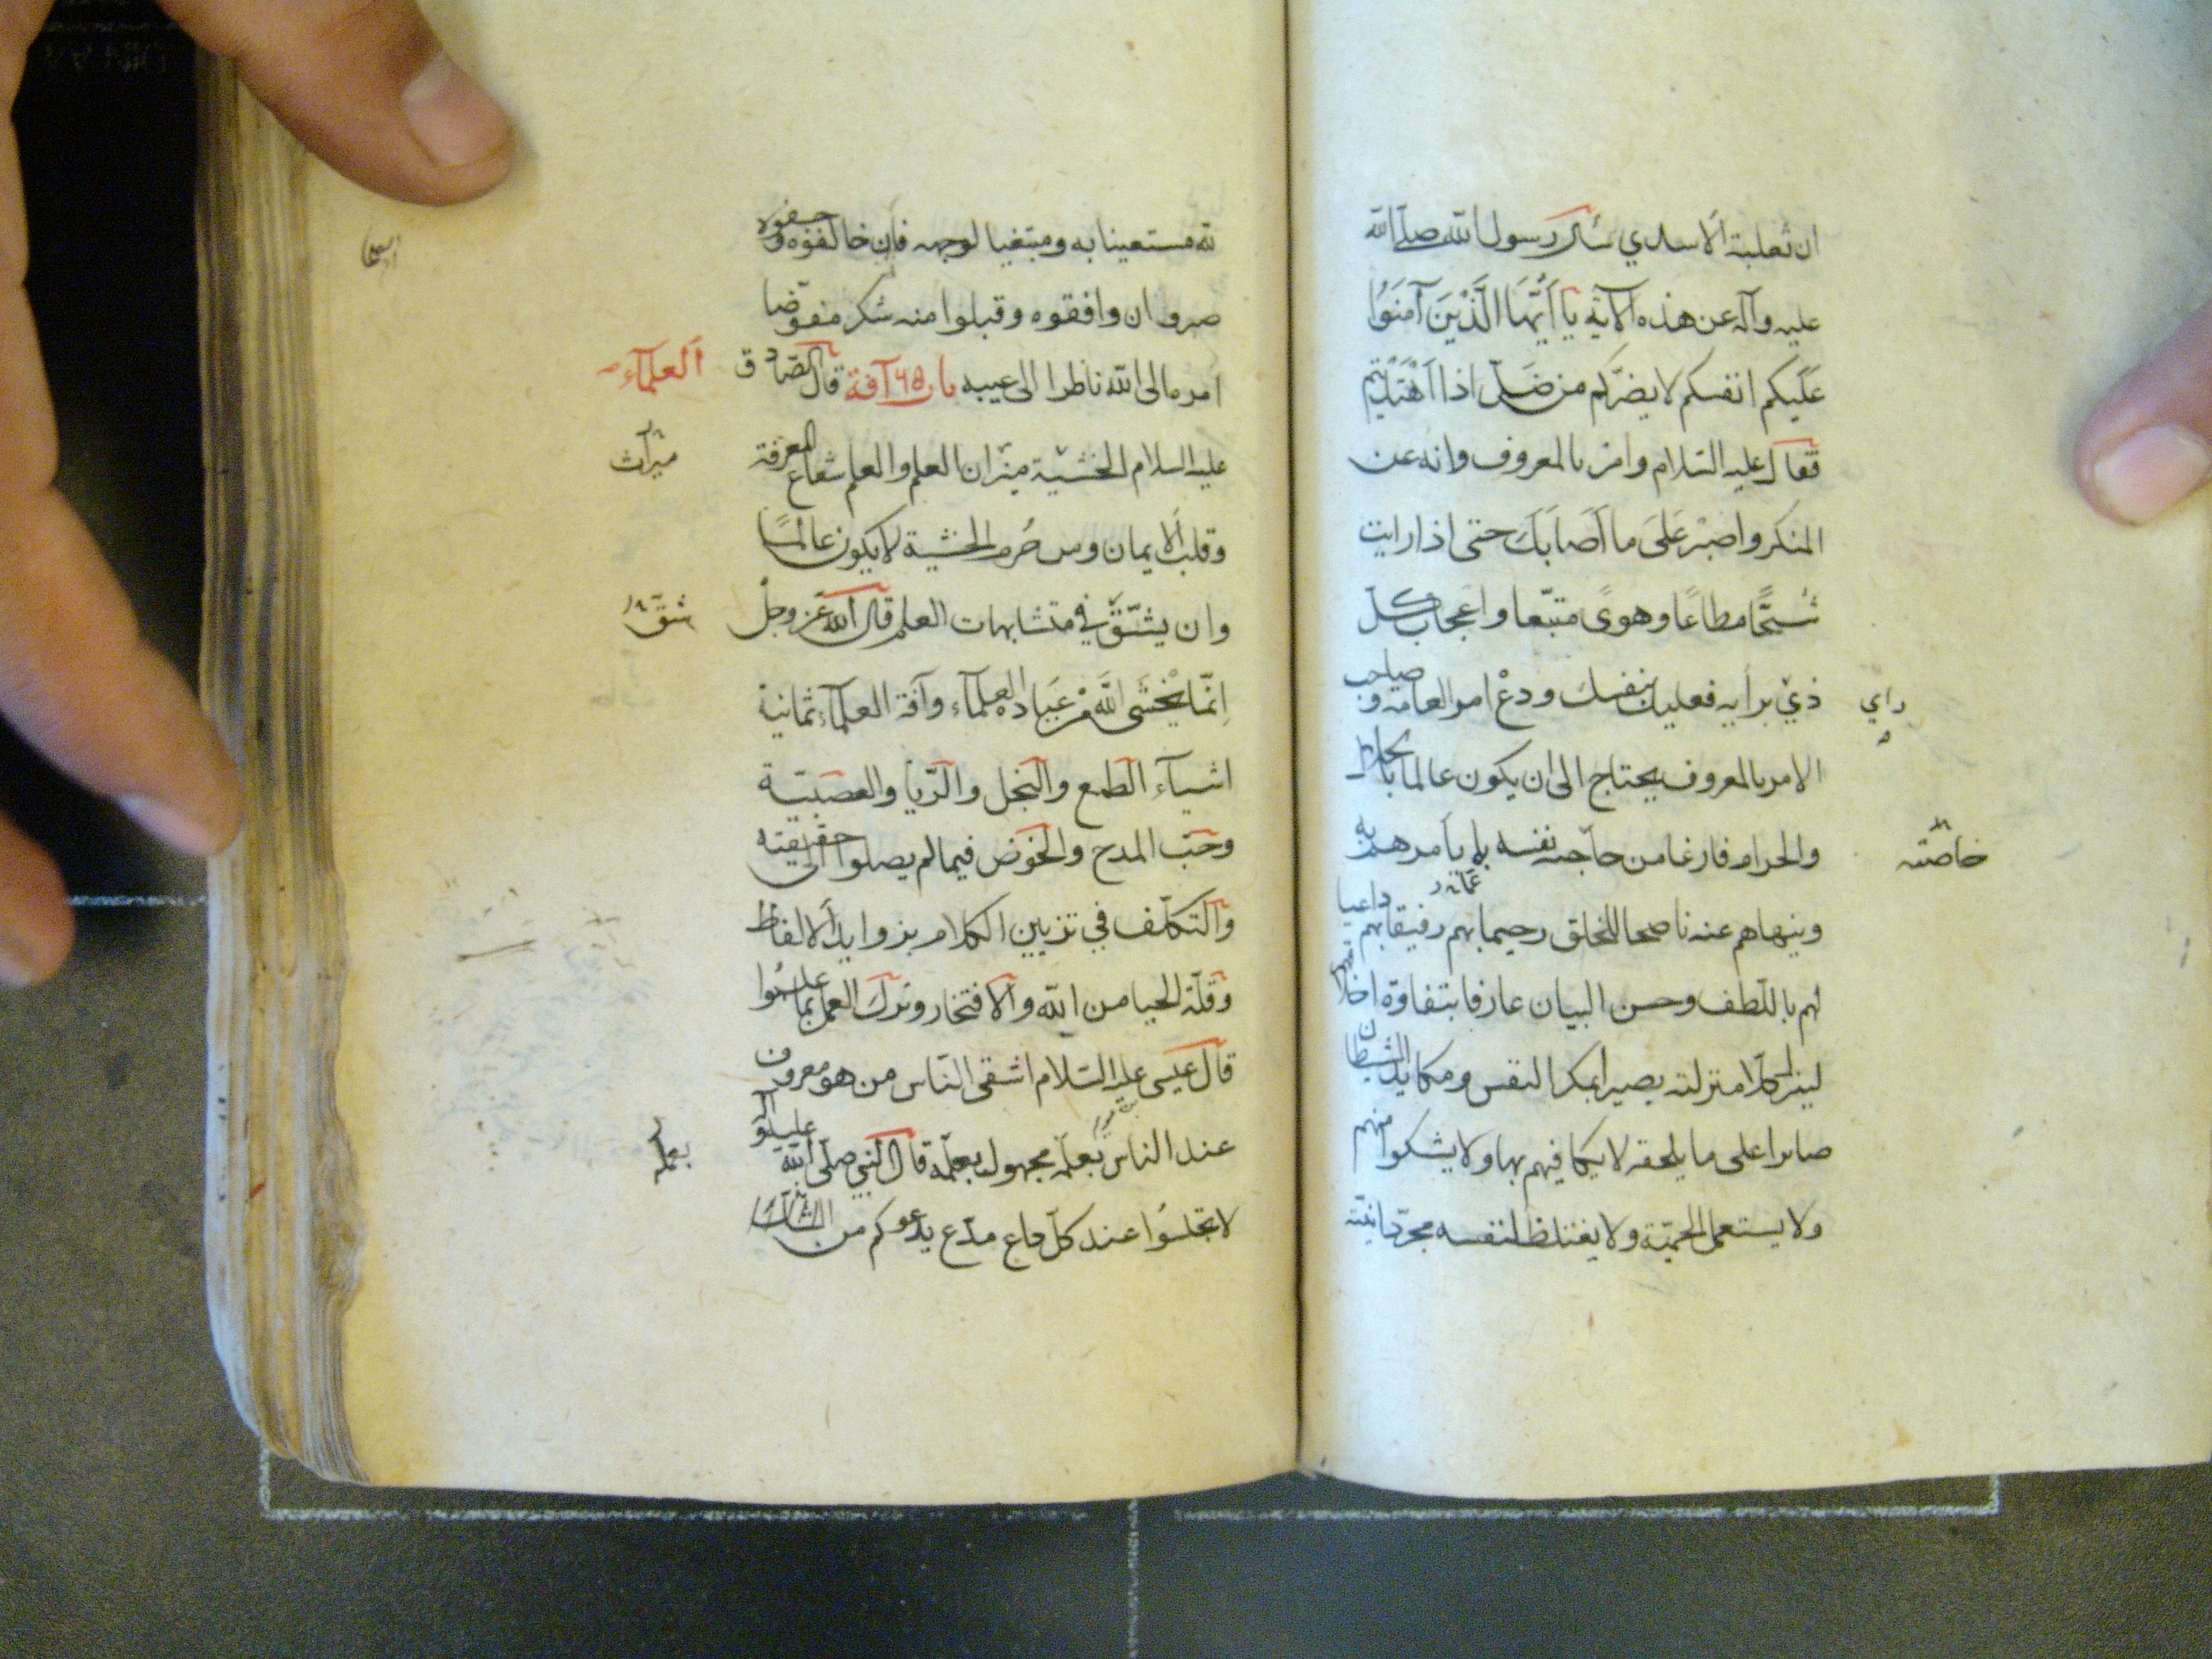 ان ثعلبة الاسدي سأل رسول الله صلى الله
عليه وآله عن هذه الآية يَا أَيُّهَا الَّذِينَ آمَنُوا
عَلَيكم انفسكم لا يضرّكم من ضَلّ اذا اهْتَدَيْتم
فقال عليه السّلام وامر بالمعروف وانه عن
المنكر واصبْر عَلَى ما اَصَابَكَ حتى اذا رايت
شُحًّا مطاعًا وهوىً متبّعا واعجاب كل
ذي برأيه فعليك بنفسك ودعْ امر العامه وصاحب
راي
الامر بالمعروف يحتاج الى ان يكون عالما بالحلال
والحرام فارغا من حاجة نفسه بما يأمرهم به
خاصّته
وينهاهم عنه ناصحا للخلق رحيما بهم رفيقا بهم داعيا
لهم باللّطف وحسن البيان عارفا بتفاوة اخلاقهم
لينزل كلّا منزلته بصيرا بمكر النفس ومكايد الشيطان
صابرا على ما يلحقه لا يكافيهم بها ولا يشكوا منهم
ولا يستعمل الحميّة ولا يغتلظ لنفسه مجرّدا نيّته
لله مستعينا به ومبتغيا لوجهه فان خالفوه وجفوه
صبر وان وافقوه وقبلوا منه شكر مفوّضا
امره الى الله ناظرا الى عيبه باب ٦٥ آفة قال الصّادق
العلمآء
عليه السلام الخشية ميزان العلم والعلم شعاع المعرفة
ميراث
وقلب الايمان ومن حُرم الخشية لا يكون عالمًا
وان يشقّق في متشابهات العلم قال الله عز وجل
شقّ
اِنّما يَخْشَى اللَّهَ مِنْ عِبَادِه العلمآء وآفة العلمآء ثمانية
اشيآء الطمع والبخل والرّيا والعصبيّة
وحبّ المدح والخوض فيما لم يصلوا الى حقيقته
والتكلّف في تزيين الكلام بزوايد الالفاظ
وقلّة الحيا من الله والافتخار وترك العمل بما علموا
قال عيسى عليه السّلام اشقى النّاس من هو معروف
عند الناس بعلمه مجهول بعمله قال النّبي صلّى الله عليه وآله
بعلمه
لا تجلسُوا عند كلّ داع مدّع يدعوكم من